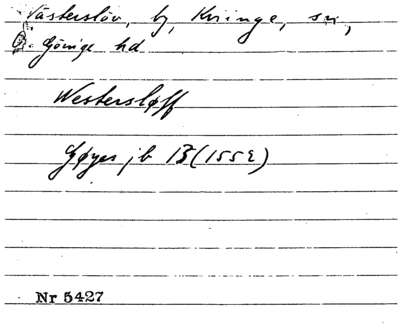 Västerslöv, by, Kviinge, sn,
Ö. Göinge hd
Westersløff
Gøyes jb 13 (1552)
Nr 5427